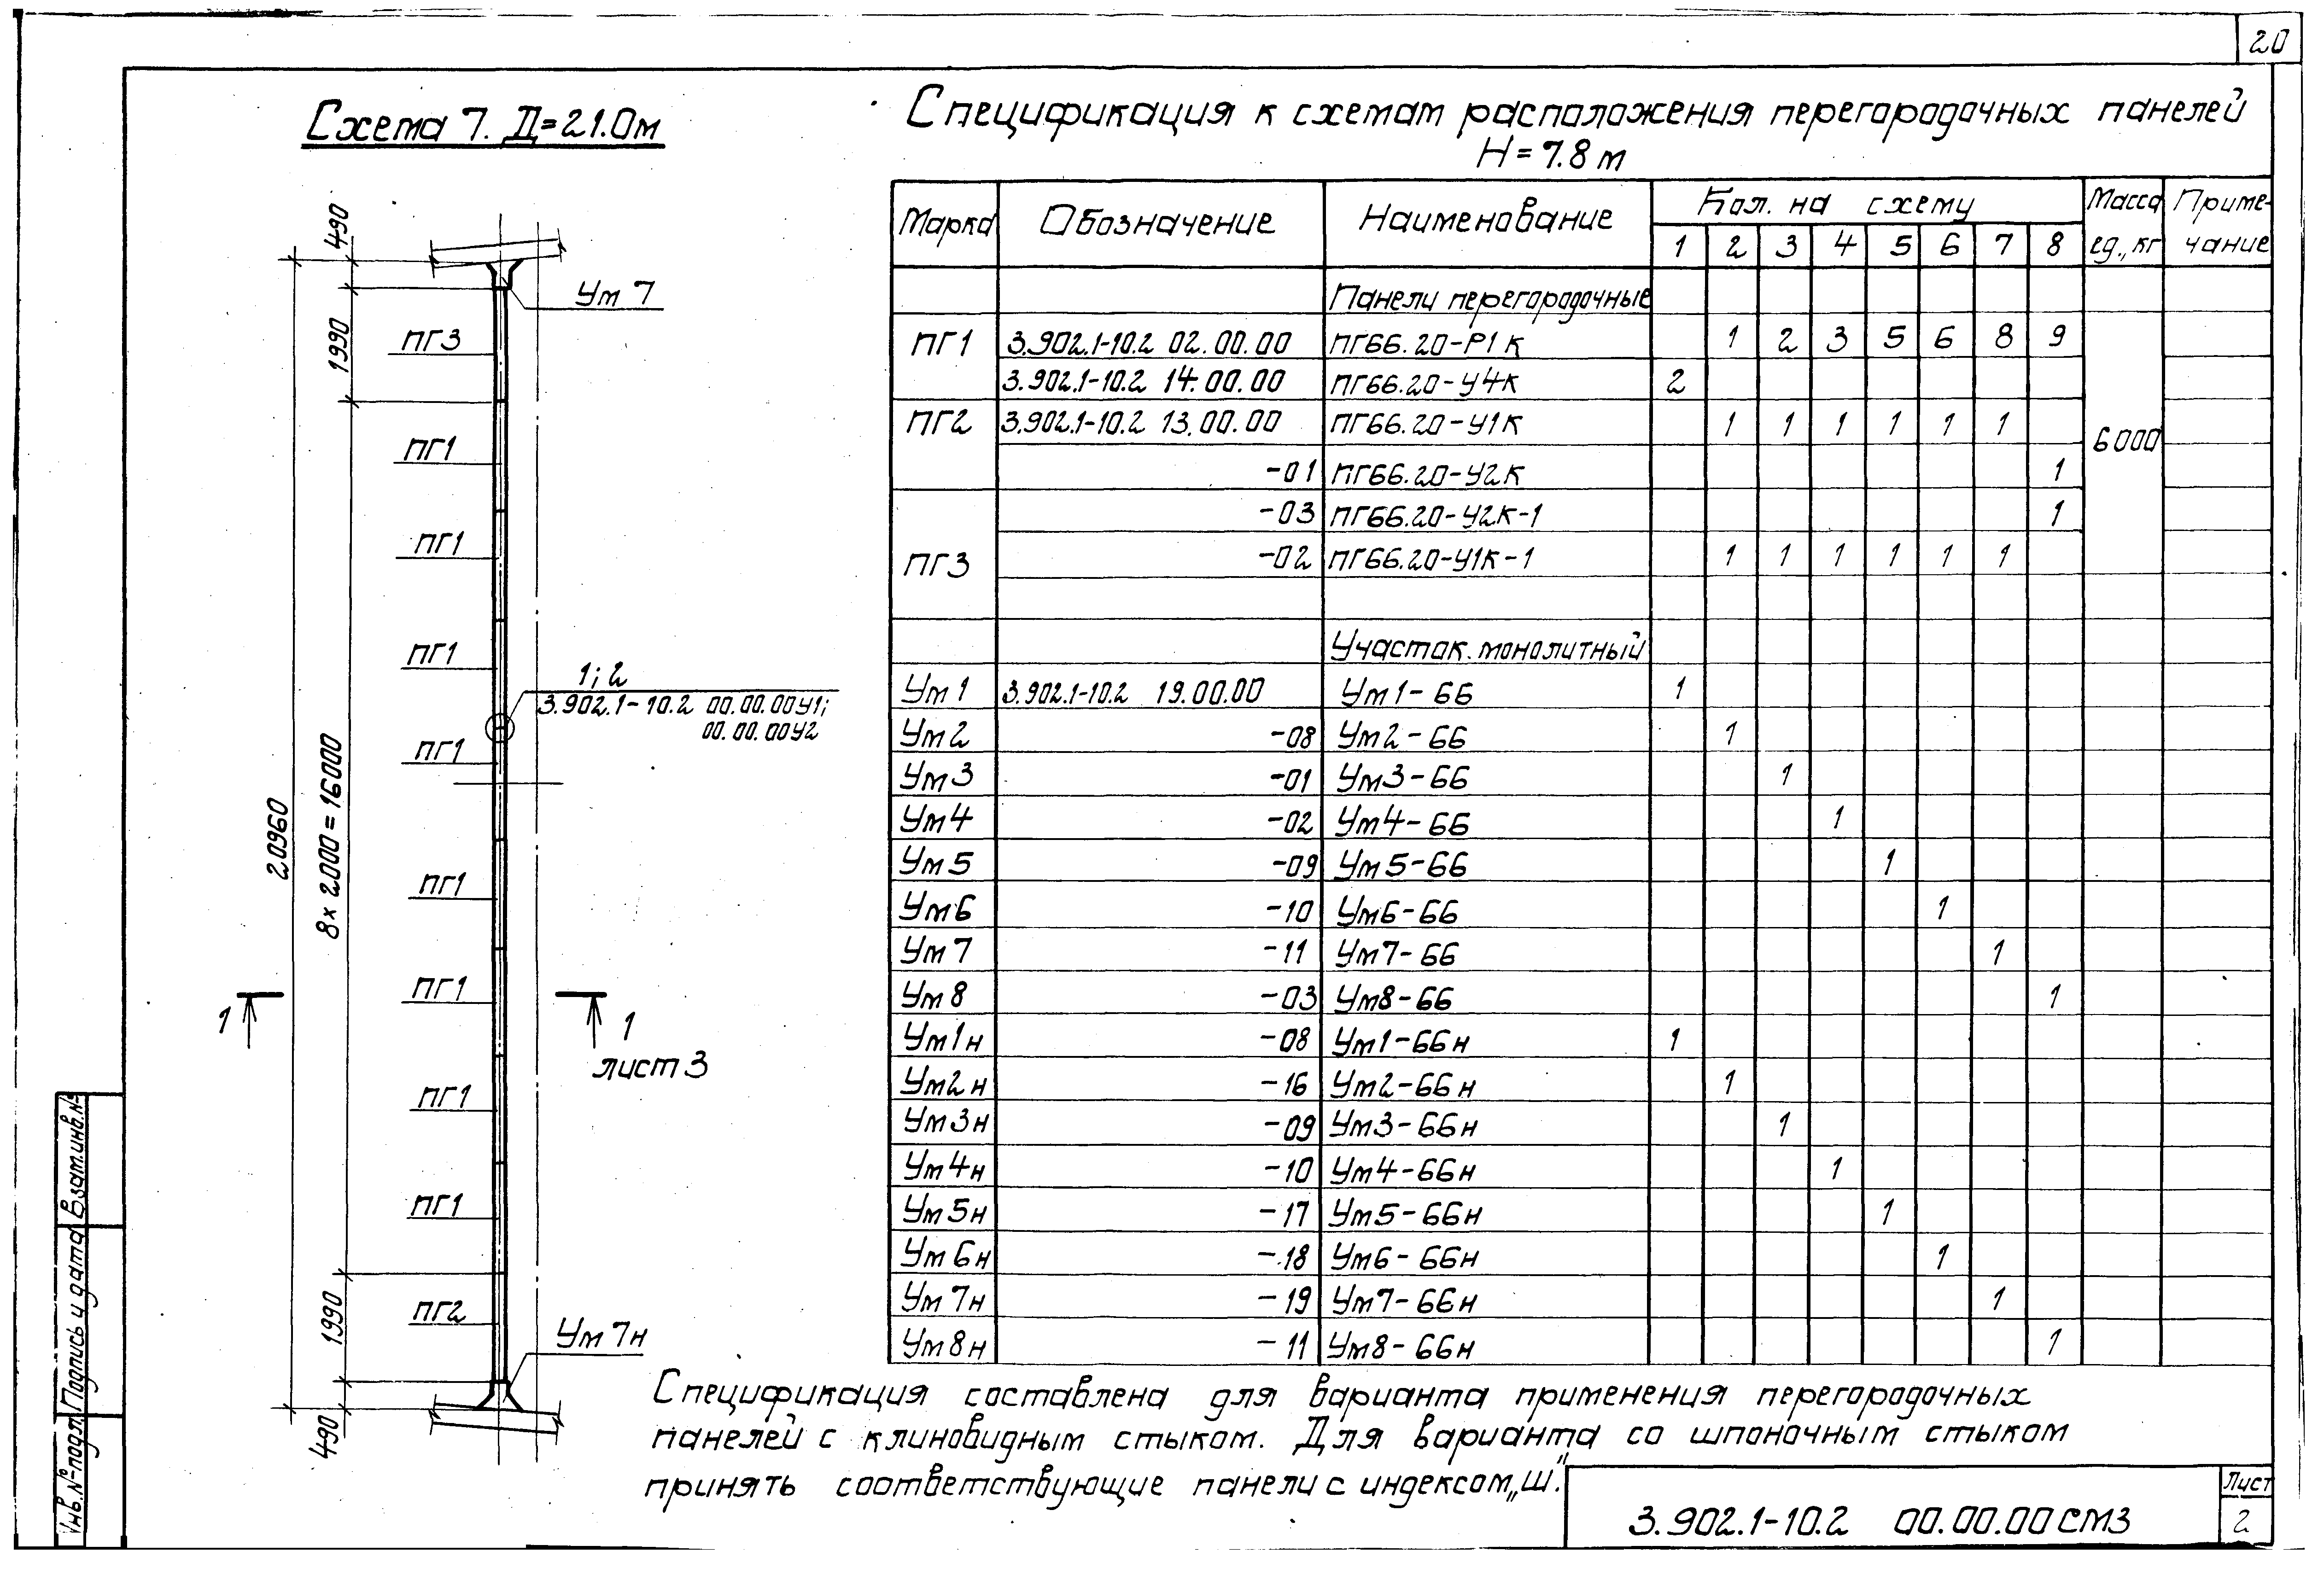 20
Схема 7. Д=21.0м
Спецификация к схемам расположения перегородочных панелей
Н=7.8м
490
1990
8×2000=16000
20960
1990
490
Ум 7
ПГ3
ПГ1
ПГ1
ПГ1
1; 2
3.902.1-10.2 00.00.00У1;
00.00.00У2
ПГ1
ПГ1
ПГ1
1 1
лист 3
ПГ1
ПГ1
ПГ2
Ум 7н
Марка Обозначение Наименование Кол. на схему Масса ед., кг Примечание
1 2 3 4 5 6 7 8
Панели перегородочные
ПГ1 3.902.1-10.2 02.00.00 ПГ66.20-Р1К 1 2 3 5 6 8 9
3.902.1-10.2 14.00.00 ПГ66.20-У4К 2
ПГ2 3.902.1-10.2 13.00.00 ПГ66.20-У1К 1 1 1 1 1 1
6000
-01 ПГ66.20-У2К 1
-03 ПГ66.20-У2К-1 1
ПГ3 -02 ПГ66.20-У1К-1 1 1 1 1 1 1
Участок монолитный
Ум 1 3.902.1-10.2 19.00.00 Ум1-66 1
Ум2 -08 Ум2-66 1
Ум3 -01 Ум3-66 1
Ум4 -02 Ум4-66 1
Ум5 -09 Ум5-66 1
Ум6 -10 Ум6-66 1
Ум7 -11 Ум7-66 1
Ум8 -03 Ум8-66 1
Ум1н -08 Ум1-66н 1
Ум2н -16 Ум2-66н 1
Ум3н -09 Ум3-66н 1
Ум4н -10 Ум4-66н 1
Ум5н -17 Ум5-66н 1
Ум6н -18 Ум6-66н 1
Ум7н -19 Ум7-66н 1
Ум8н -11 Ум8-66н 1
Спецификация составлена для варианта применения перегородочных
панелей с клиновидным стыком. Для варианта со шпоночным стыком
принять соответствующие панели с индексом „Ш".
3.902.1-10.2 00.00.00СМ3
Лист
2
Инв. № подл. Подпись и дата Взам.инв.№